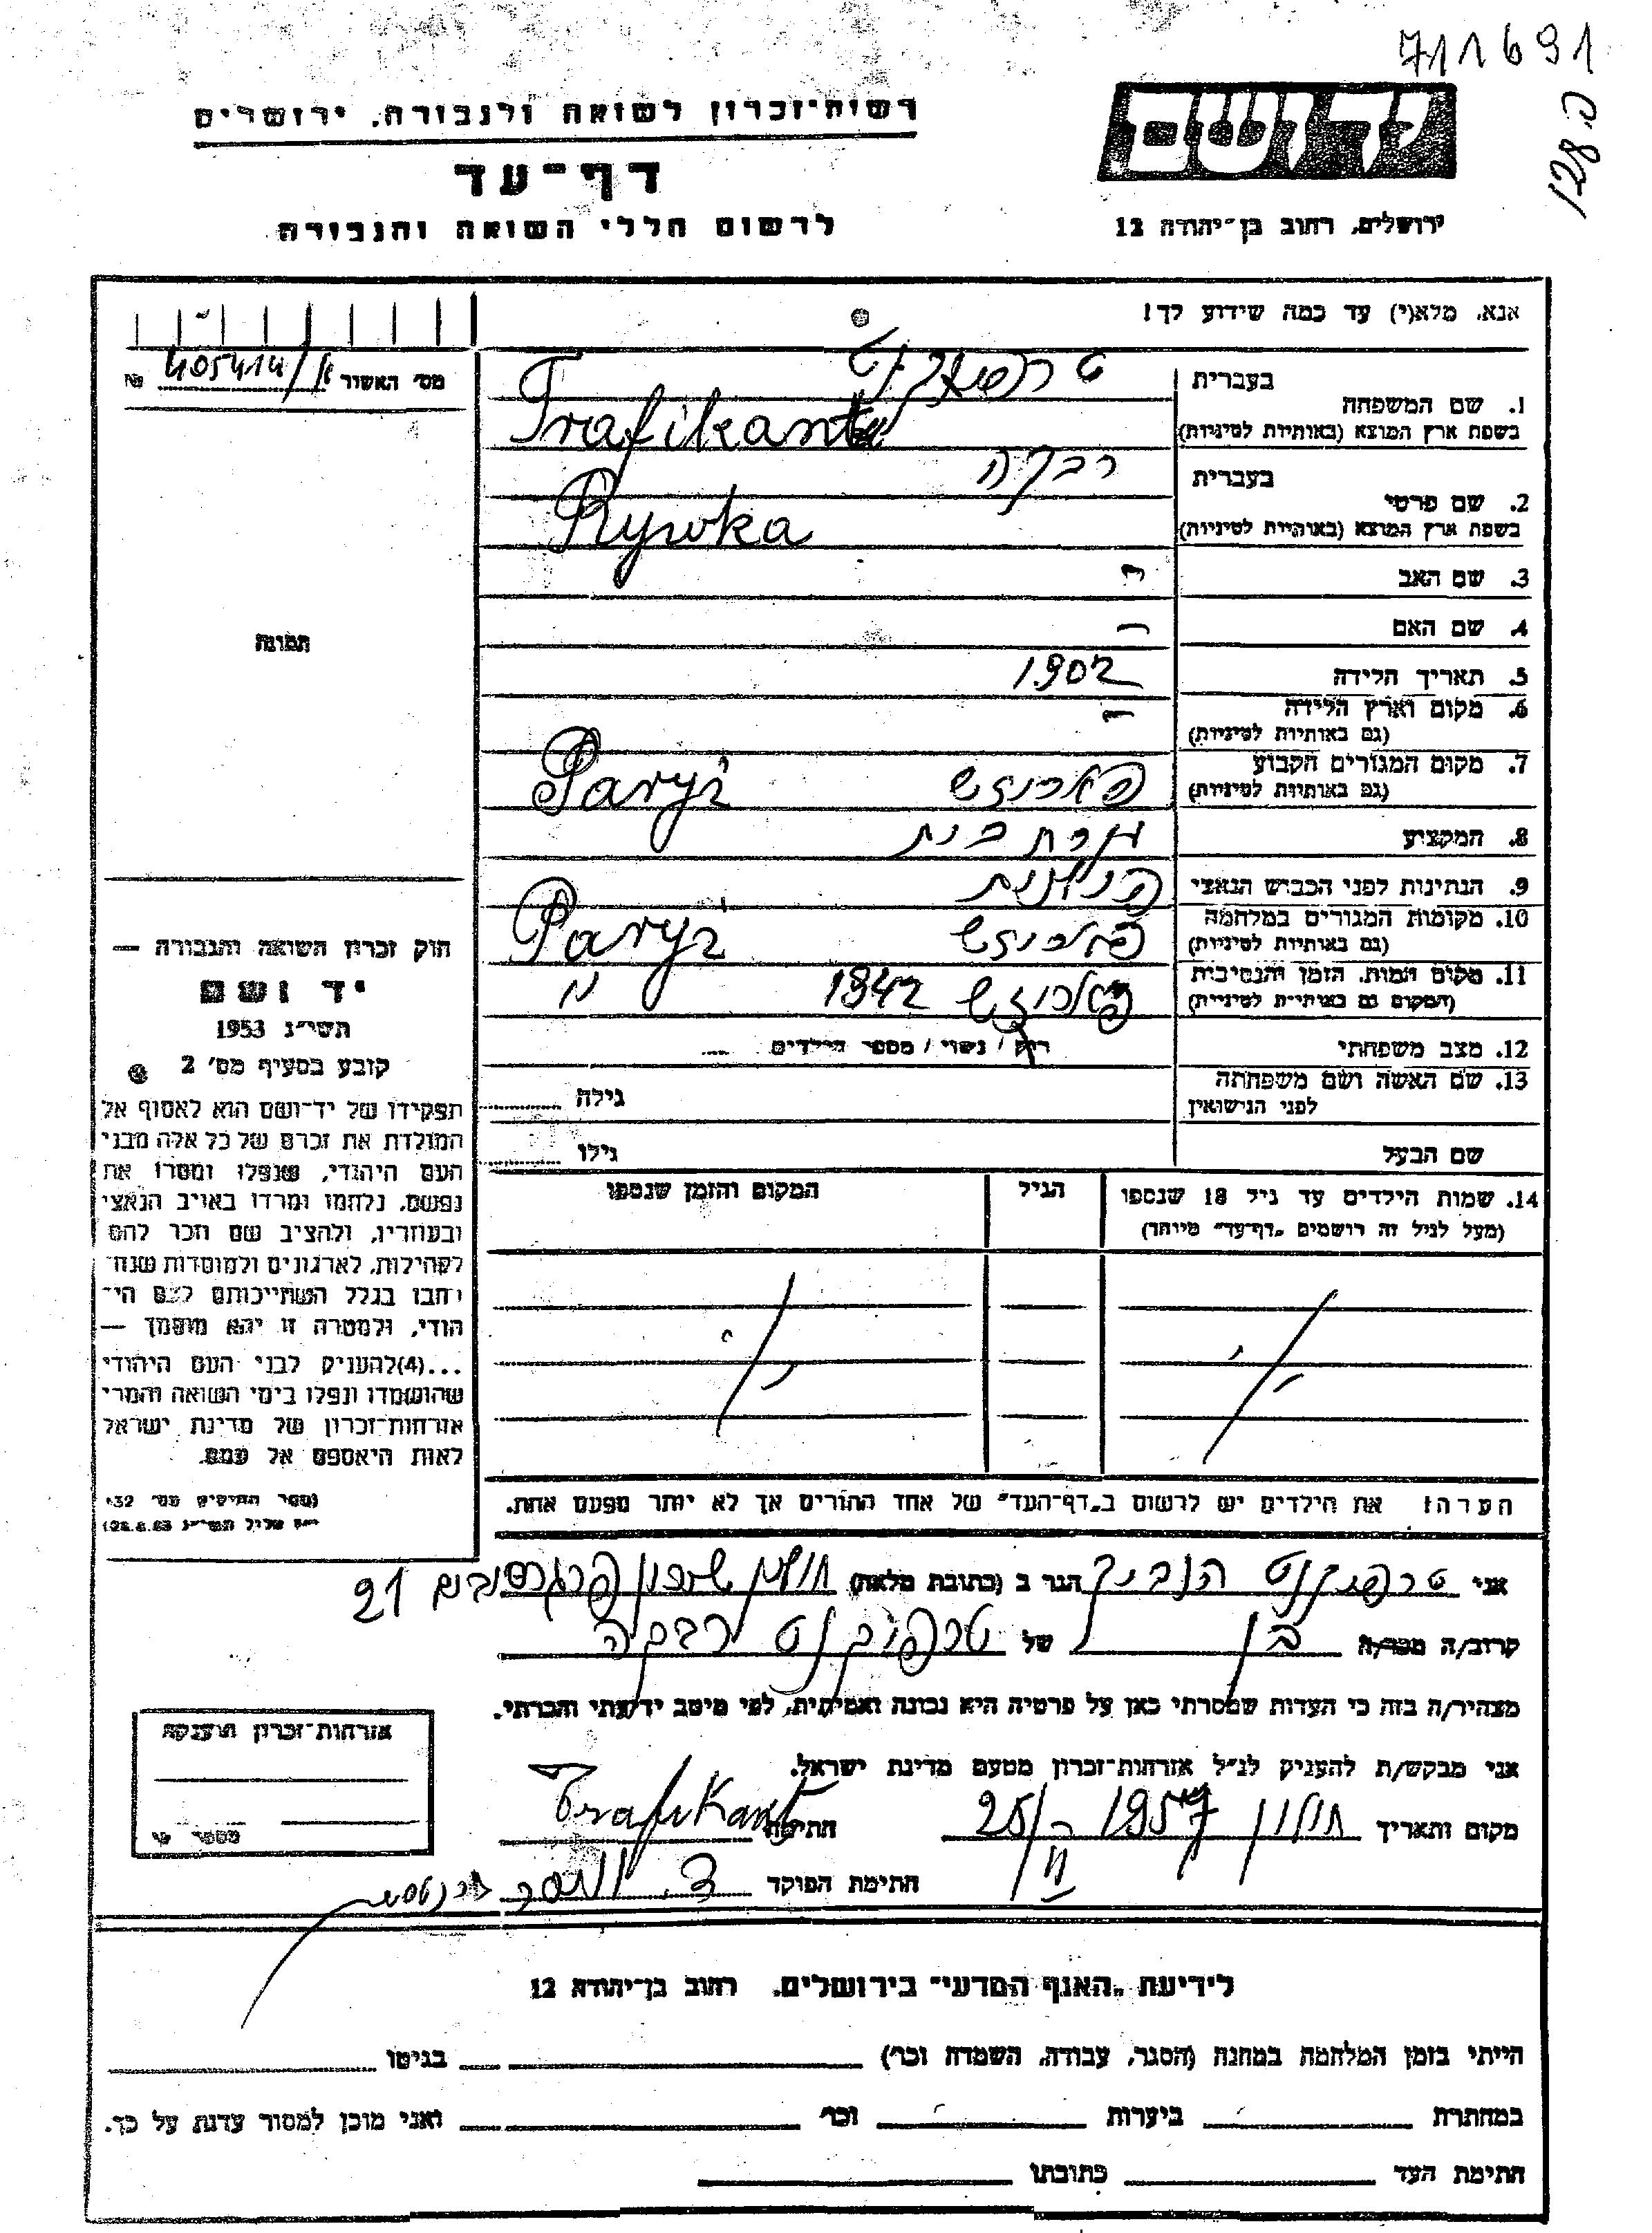 711691
128 ה.
יד ושם
ירושלים, רחוב בן־יהודה 12
רשות־זכרון לשואה ולגבורה, ירושלים
דף־עד
לרשום חללי השואה והגבורה
אנא, מלא(י) עד כמה שידוע לך!
מס' האשור 405414/א №
בעברית
1. שם המשפחה
בשפת ארץ המוצא (באותיות לטיניות)
טרפיקנט
Trafikant
בעברית
2. שם פרטי
בשפת ארץ המוצא (באותיות לטיניות)
רבקה
Rywka
3. שם האב –
4. שם האם –
5. תאריך הלידה 1902
6. מקום וארץ הלידה –
(גם באותיות לטיניות)
7. מקום המגורים הקבוע
(גם באותיות לטיניות)
פאריזש Paryż
8. המקצוע עקרת בית
9. הנתינות לפני הכבוש הנאצי פולנית
10. מקומות המגורים במלחמה
(גם באותיות לטיניות)
פאריזש Paryż
11. מקום המות, הזמן והנסיבות
(המקום גם באותיות לטיניות)
פאריזש 1942 "
12. מצב משפחתי רוק / נשוי / מספר הילדים
13. שם האשה ושם משפחתה
לפני הנישואין
גילה
שם הבעל גילו
14. שמות הילדים עד גיל 18 שנספו
(מעל לגיל זה רושמים „דף־עד" מיוחד)
הגיל
המקום והזמן שנספו
הערה: את הילדים יש לרשום ב„דף־העד" של אחד ההורים אך לא יותר מפעם אחת.
תמונה
חוק זכרון השואה והגבורה —
יד ושם
תשי"ג 1953
קובע בסעיף מס' 2
תפקידו של יד־ושם הוא לאסוף אל
המולדת את זכרם של כל אלה מבני
העם היהודי, שנפלו ומסרו את
נפשם, נלחמו ומרדו באויב הנאצי
ובעוזריו, ולהציב שם וזכר להם
לקהילות, לארגונים ולמוסדות שנח־
רבו בגלל השתייכותם לעם הי־
הודי, ולמטרה זו יהא מוסמך —
...(4)להעניק לבני העם היהודי
שהושמדו ונפלו בימי השואה והמרי
אזרחות־זכרון של מדינת ישראל
לאות היאספם אל עמם.
(ספר החוקים מס' 132
אני טרפיקנט הגר ב (כתובת מלאה) חולון 21
קרוב/ה מכר/ה בן של טרפיקנט רבקה
מצהיר/ה בזה כי העדות שמסרתי כאן על פרטיה היא נכונה ואמיתית, לפי מיטב ידיעתי והכרתי.
אני מבקש/ת להעניק לנ"ל אזרחות־זכרון מטעם מדינת ישראל.
מקום ותאריך חולון 1957 25/II חתימה Trafikant
חתימת הפוקד
אזרחות־זכרון הוענקה
מספר
לידיעת „האגף המדעי" בירושלים, רחוב בן־יהודה 12
הייתי בזמן המלחמה במחנה (הסגר, עבודה, השמדה וכו') בגיטו
במחתרת ביערות וכו' ואני מוכן למסור עדות על כך.
חתימת העד כתובתו